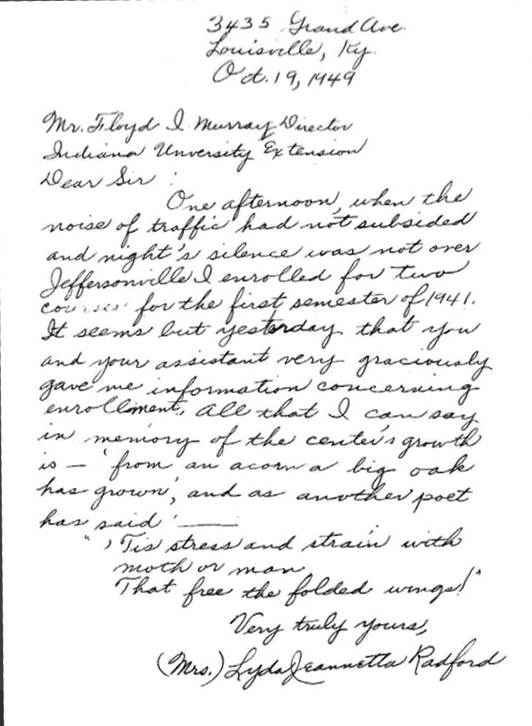 3435 Grand Ave.
Louisville, Ky.
Oct. 19, 1949
Mr. Floyd I Murray Director
Indiana Unversity Extension
Dear Sir:
One afternoon, when the
noise of traffic had not subsided
and night's silence was not over
Jeffersonville I enrolled for two
courses for the first semester of 1941.
It seems but yesterday that you
and your assistant very graciously
gave me information concerning
enrollment. All that I can say
in memory of the center's growth
is — 'from an acorn a big oak
has grown', and as another poet
has said ' ——
" 'Tis stress and strain with
moth or man
That free the folded wings!"
Very truly yours,
(Mrs.) Lyda Jeannetta Radford